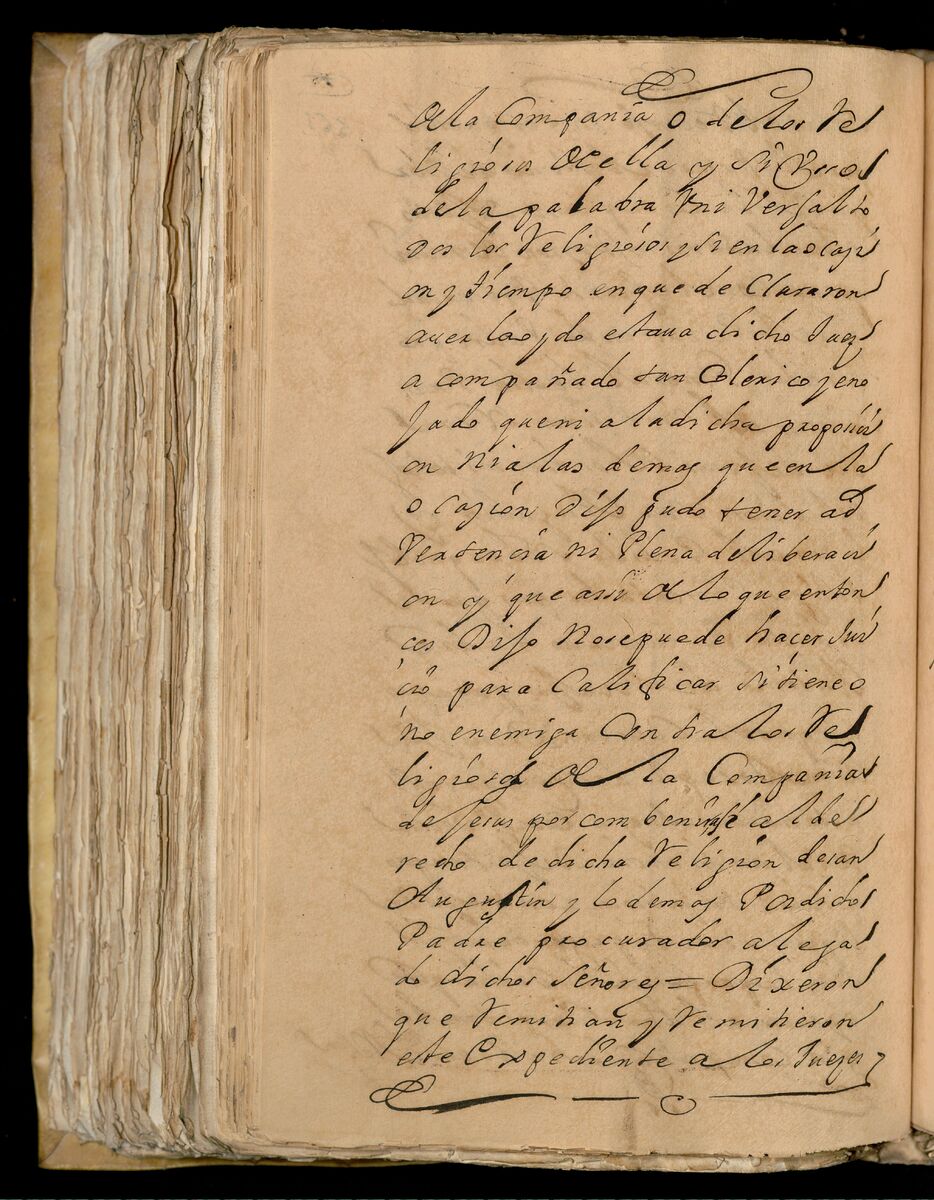 de la Compania o de los Re
ligiosos de ella y si
de la palabra Vniversal to
dos los Religiosos y si en la ocasi
on y tiempo en que de Clararon
auerla oydo estaua dicho Juez
a compañado tan Colerico y eno
jado que ni a la dicha proposici
on Ni a las demas que en la
ocasion Dijo pudo tener ad
Vertencia ni Plena deliberaci
on y que assi de lo que enton
ces Dijo No se puede hacer Jui
cio para Calificar si tiene o
no enemiga Contra los Re
ligiosos de la Compañia
de Jesus por combenirse al de
recho de dicha Religion de san
Augustin y lo demas Por dicho
Padre procurador alega
do dichos señores = Dixeron
que Remitian y Remitieron
este Expediente a los Juezes